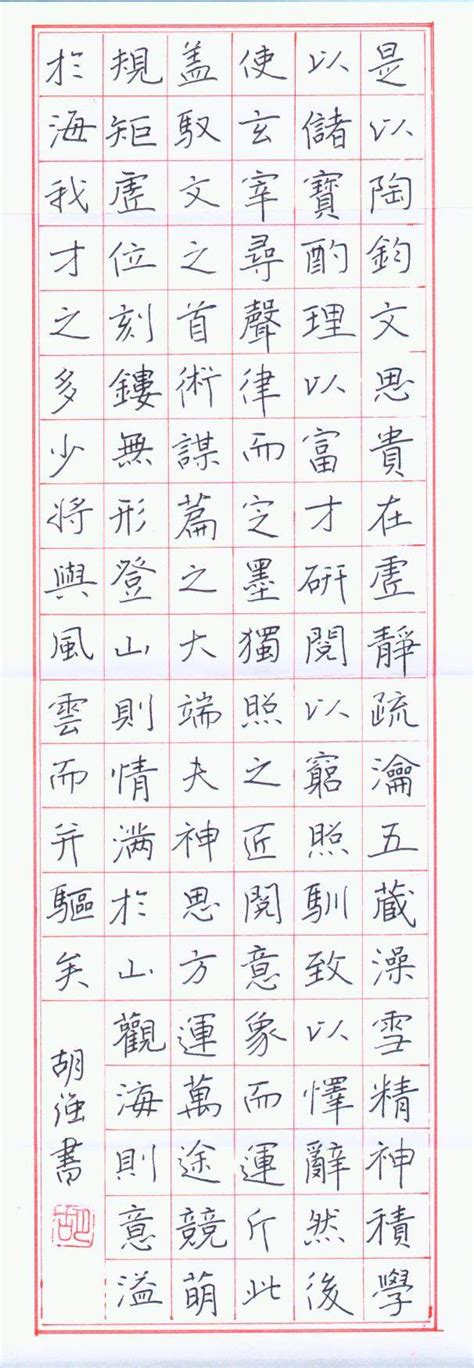 是以陶鈞文思貴在虛靜疏瀹五藏澡雪精神積學
以儲寶酌理以富才研閱以窮照馴致以懌辭然後
使玄宰尋聲律而定墨獨照之匠閱意象而運斤此
蓋馭文之首術謀篇之大端夫神思方運萬途競萌
規矩虛位刻鏤無形登山則情滿於山觀海則意溢
於海我才之多少將與風雲而并驅矣
胡强書
胡